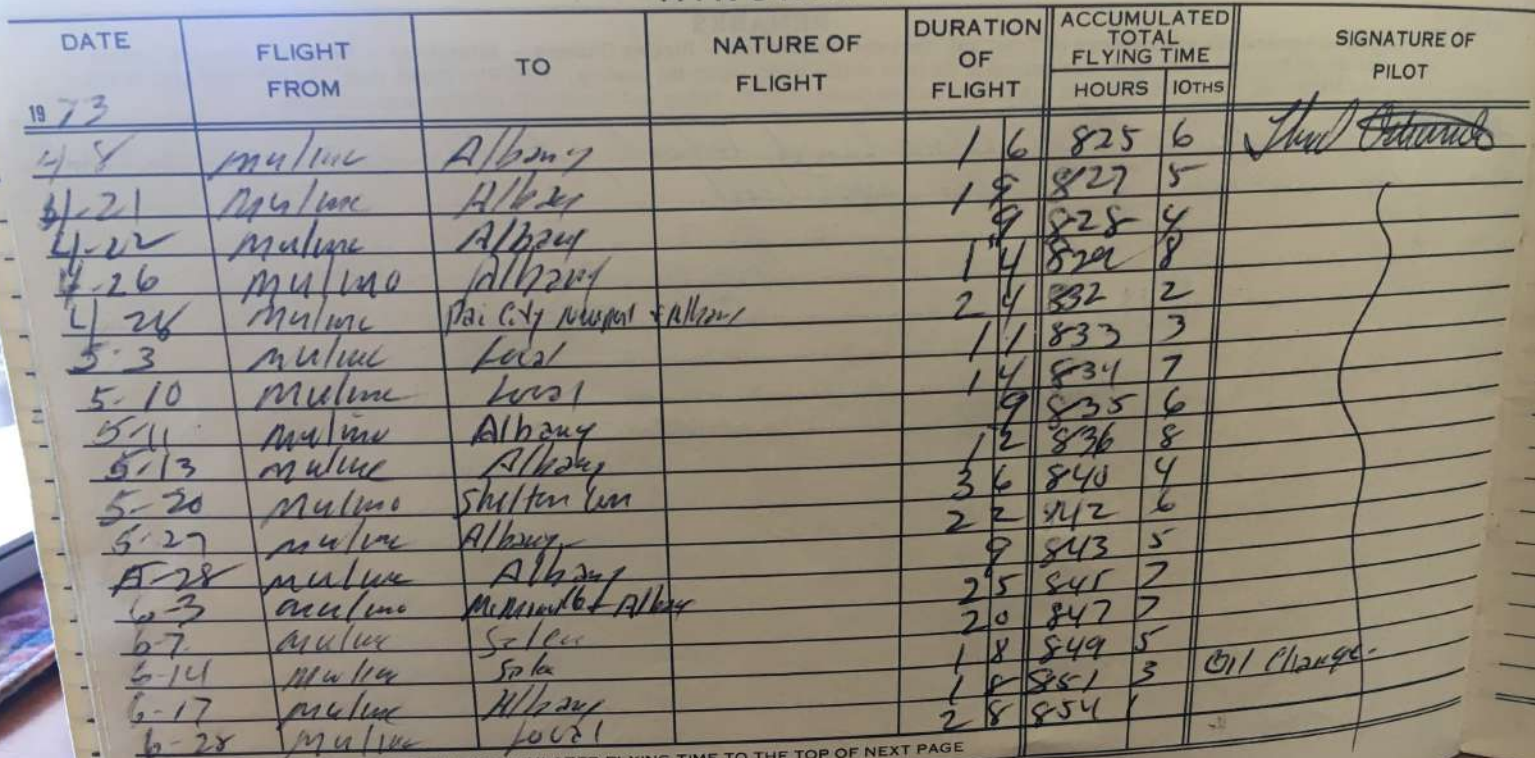 DATE FLIGHT FROM TO NATURE OF FLIGHT DURATION OF FLIGHT ACCUMULATED TOTAL FLYING TIME HOURS 10THS SIGNATURE OF PILOT
1973
4-8 Mulino Albany 1 6 825 6
4-21 Mulino Albany 1 9 827 5
4-22 Mulino Albany 9 828 4
4-26 Mulino Albany 1 4 829 8
4 28 Mulino Pac City Newport & Albany 2 4 832 2
5-3 Mulino Local 1 1 833 3
5-10 Mulino Local 1 4 834 7
5-11 Mulino Albany 9 835 6
5-13 Mulino Albany 1 2 836 8
5-20 Mulino Shelton 3 6 840 4
5-27 Mulino Albany 2 2 842 6
5-28 Mulino Albany 9 843 5
6-3 Mulino Albany 2 5 845 7
6-7 Mulino Salem 2 0 847 7
6-14 Mulino Salem 1 8 849 5
6-17 Mulino Albany 1 8 851 3 Oil Change-
6-28 Mulino Local 2 8 854 1
FLYING TIME TO THE TOP OF NEXT PAGE